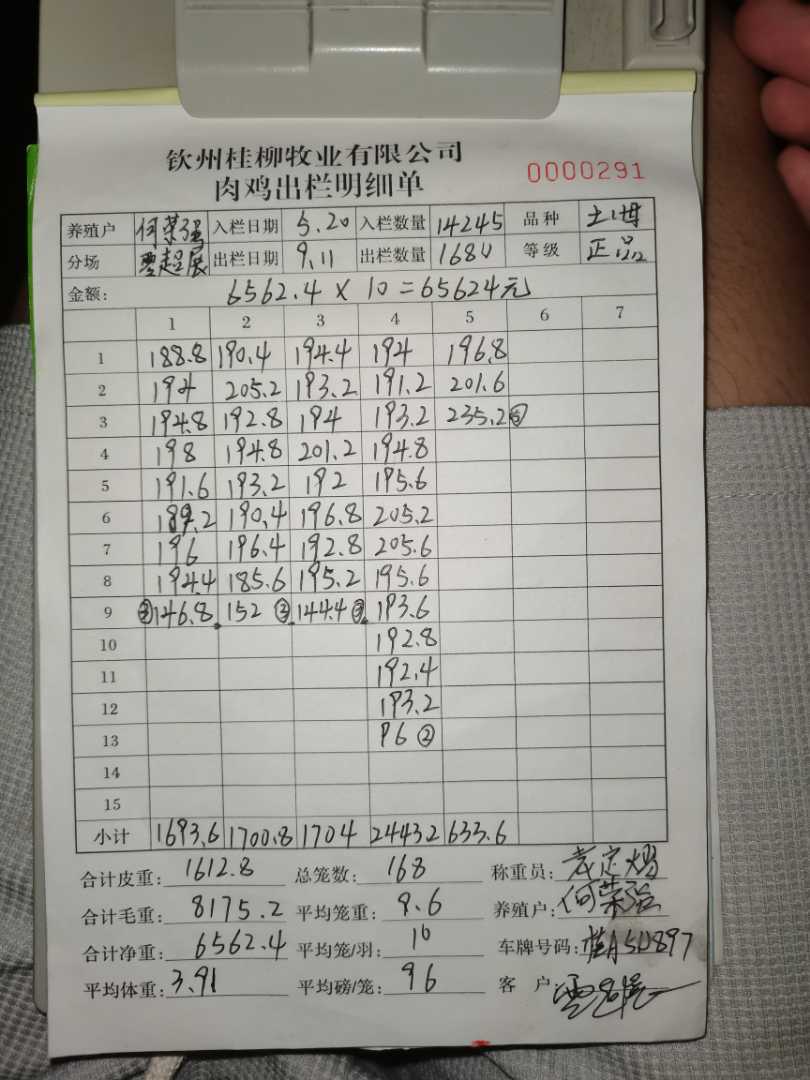 钦州桂柳牧业有限公司
肉鸡出栏明细单 0000291
养殖户 何荣强 入栏日期 5.20 入栏数量 14245 品种
分场 覃超展 出栏日期 9.11 出栏数量 1680 等级 正品
金额: 6562.4 × 10 = 65624元
1 2 3 4 5 6 7
1 188.8 190.4 194.4 194 196.8
2 194 205.2 193.2 191.2 201.6
3 194.8 192.8 194 193.2 235.2
4 198 194.8 201.2 194.8
5 191.6 193.2 192 195.6
6 189.2 190.4 196.8 205.2
7 196 196.4 192.8 205.6
8 194.4 185.6 195.2 195.6
9 ③146.8 152 ③ 144.4 ③ 193.6
10 192.8
11 192.4
12 193.2
13 96 ②
14
15
小计 1693.6 1700.8 1704 2443.2 633.6
合计皮重: 1612.8 总笼数: 168 称重员:
合计毛重: 8175.2 平均笼重: 9.6 养殖户: 何荣强
合计净重: 6562.4 平均笼/羽: 10 车牌号码: 桂A5D897
平均体重: 3.91 平均磅/笼: 96 客户: